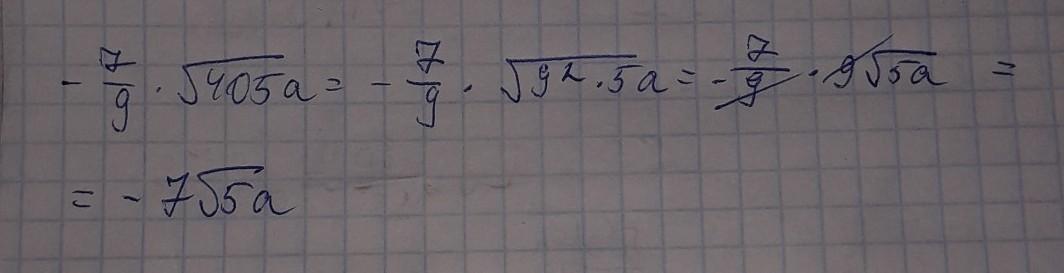 - 7/9 · √405a = - 7/9 · √9² · 5a = - 7/9 · 9√5a =
= - 7√5a